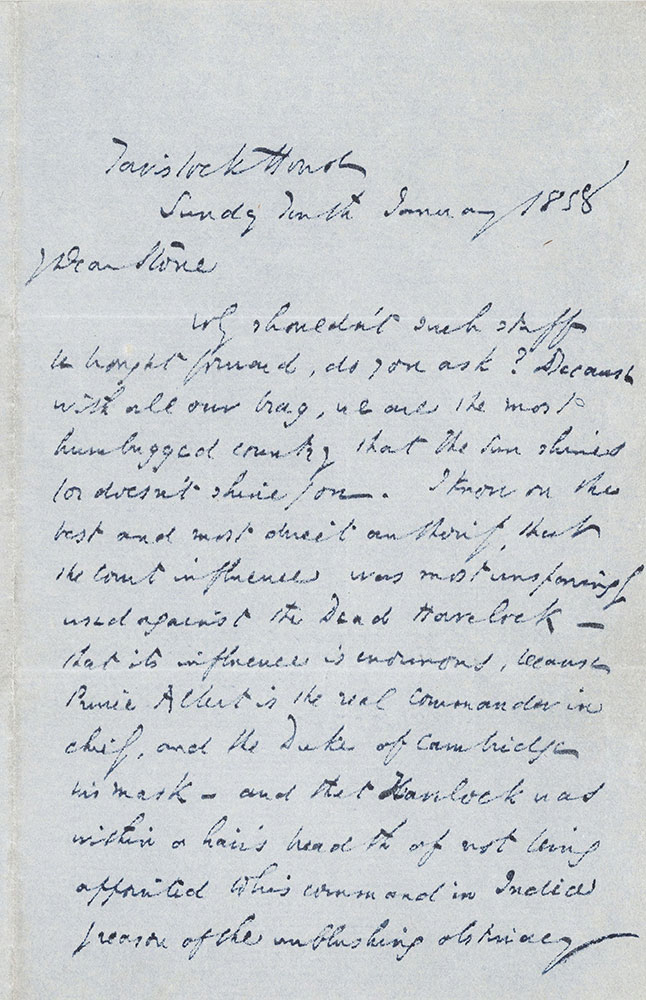 Tavistock House
Sunday Tenth January 1858
My Dear Stone
Why shouldn't such stuff
be brought forward, do you ask? Because
with all our brag, we are the most
humbugged country that the sun shines
(or doesn't shine) on. I know on the
best and most direct authority, that
the Court influence was most unsparingly
used against the Dead Havelock —
that its influence is enormous, because
Prince Albert is the real commander in
chief, and the Duke of Cambridge
his mask — and that Havelock was
within a hair's breadth of not being
appointed to his command in India
by reason of the unblushing obstinacy